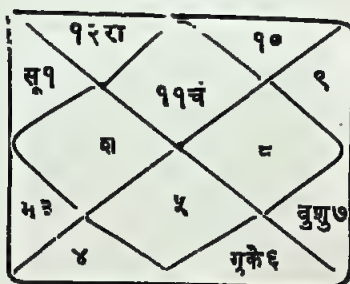 १२रा १०
सू१ ११चं ९
श ८
भ३ ५ वुशु७
४ गुके६